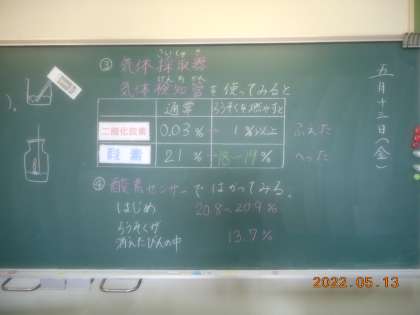 ③ 気体採取器
さいしゅき
気体検知管を使ってみると
けんちかん
通常 ろうそくを燃やすと
二酸化炭素 0.03% 1%以上 ふえた
酸素 21% 18~19% へった
④ 酸素センサーではかってみる。
はじめ 20.8~20.9%
ろうそくが
消えたびんの中 13.7%
五月十三日(金)
2022.05.13